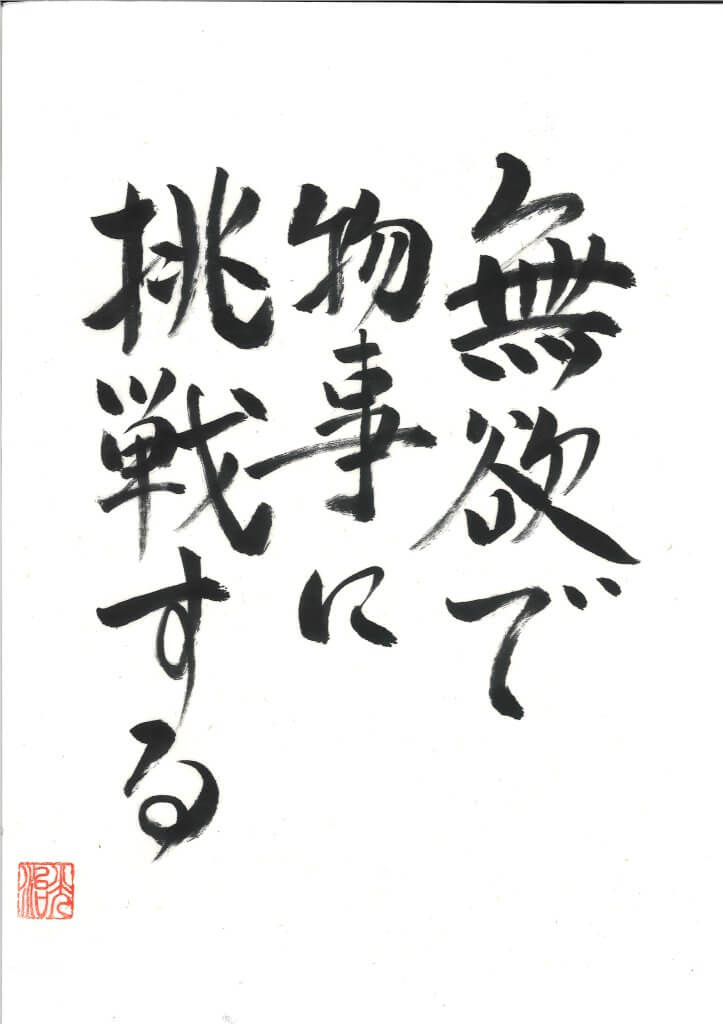 無欲で
物事に
挑戦する